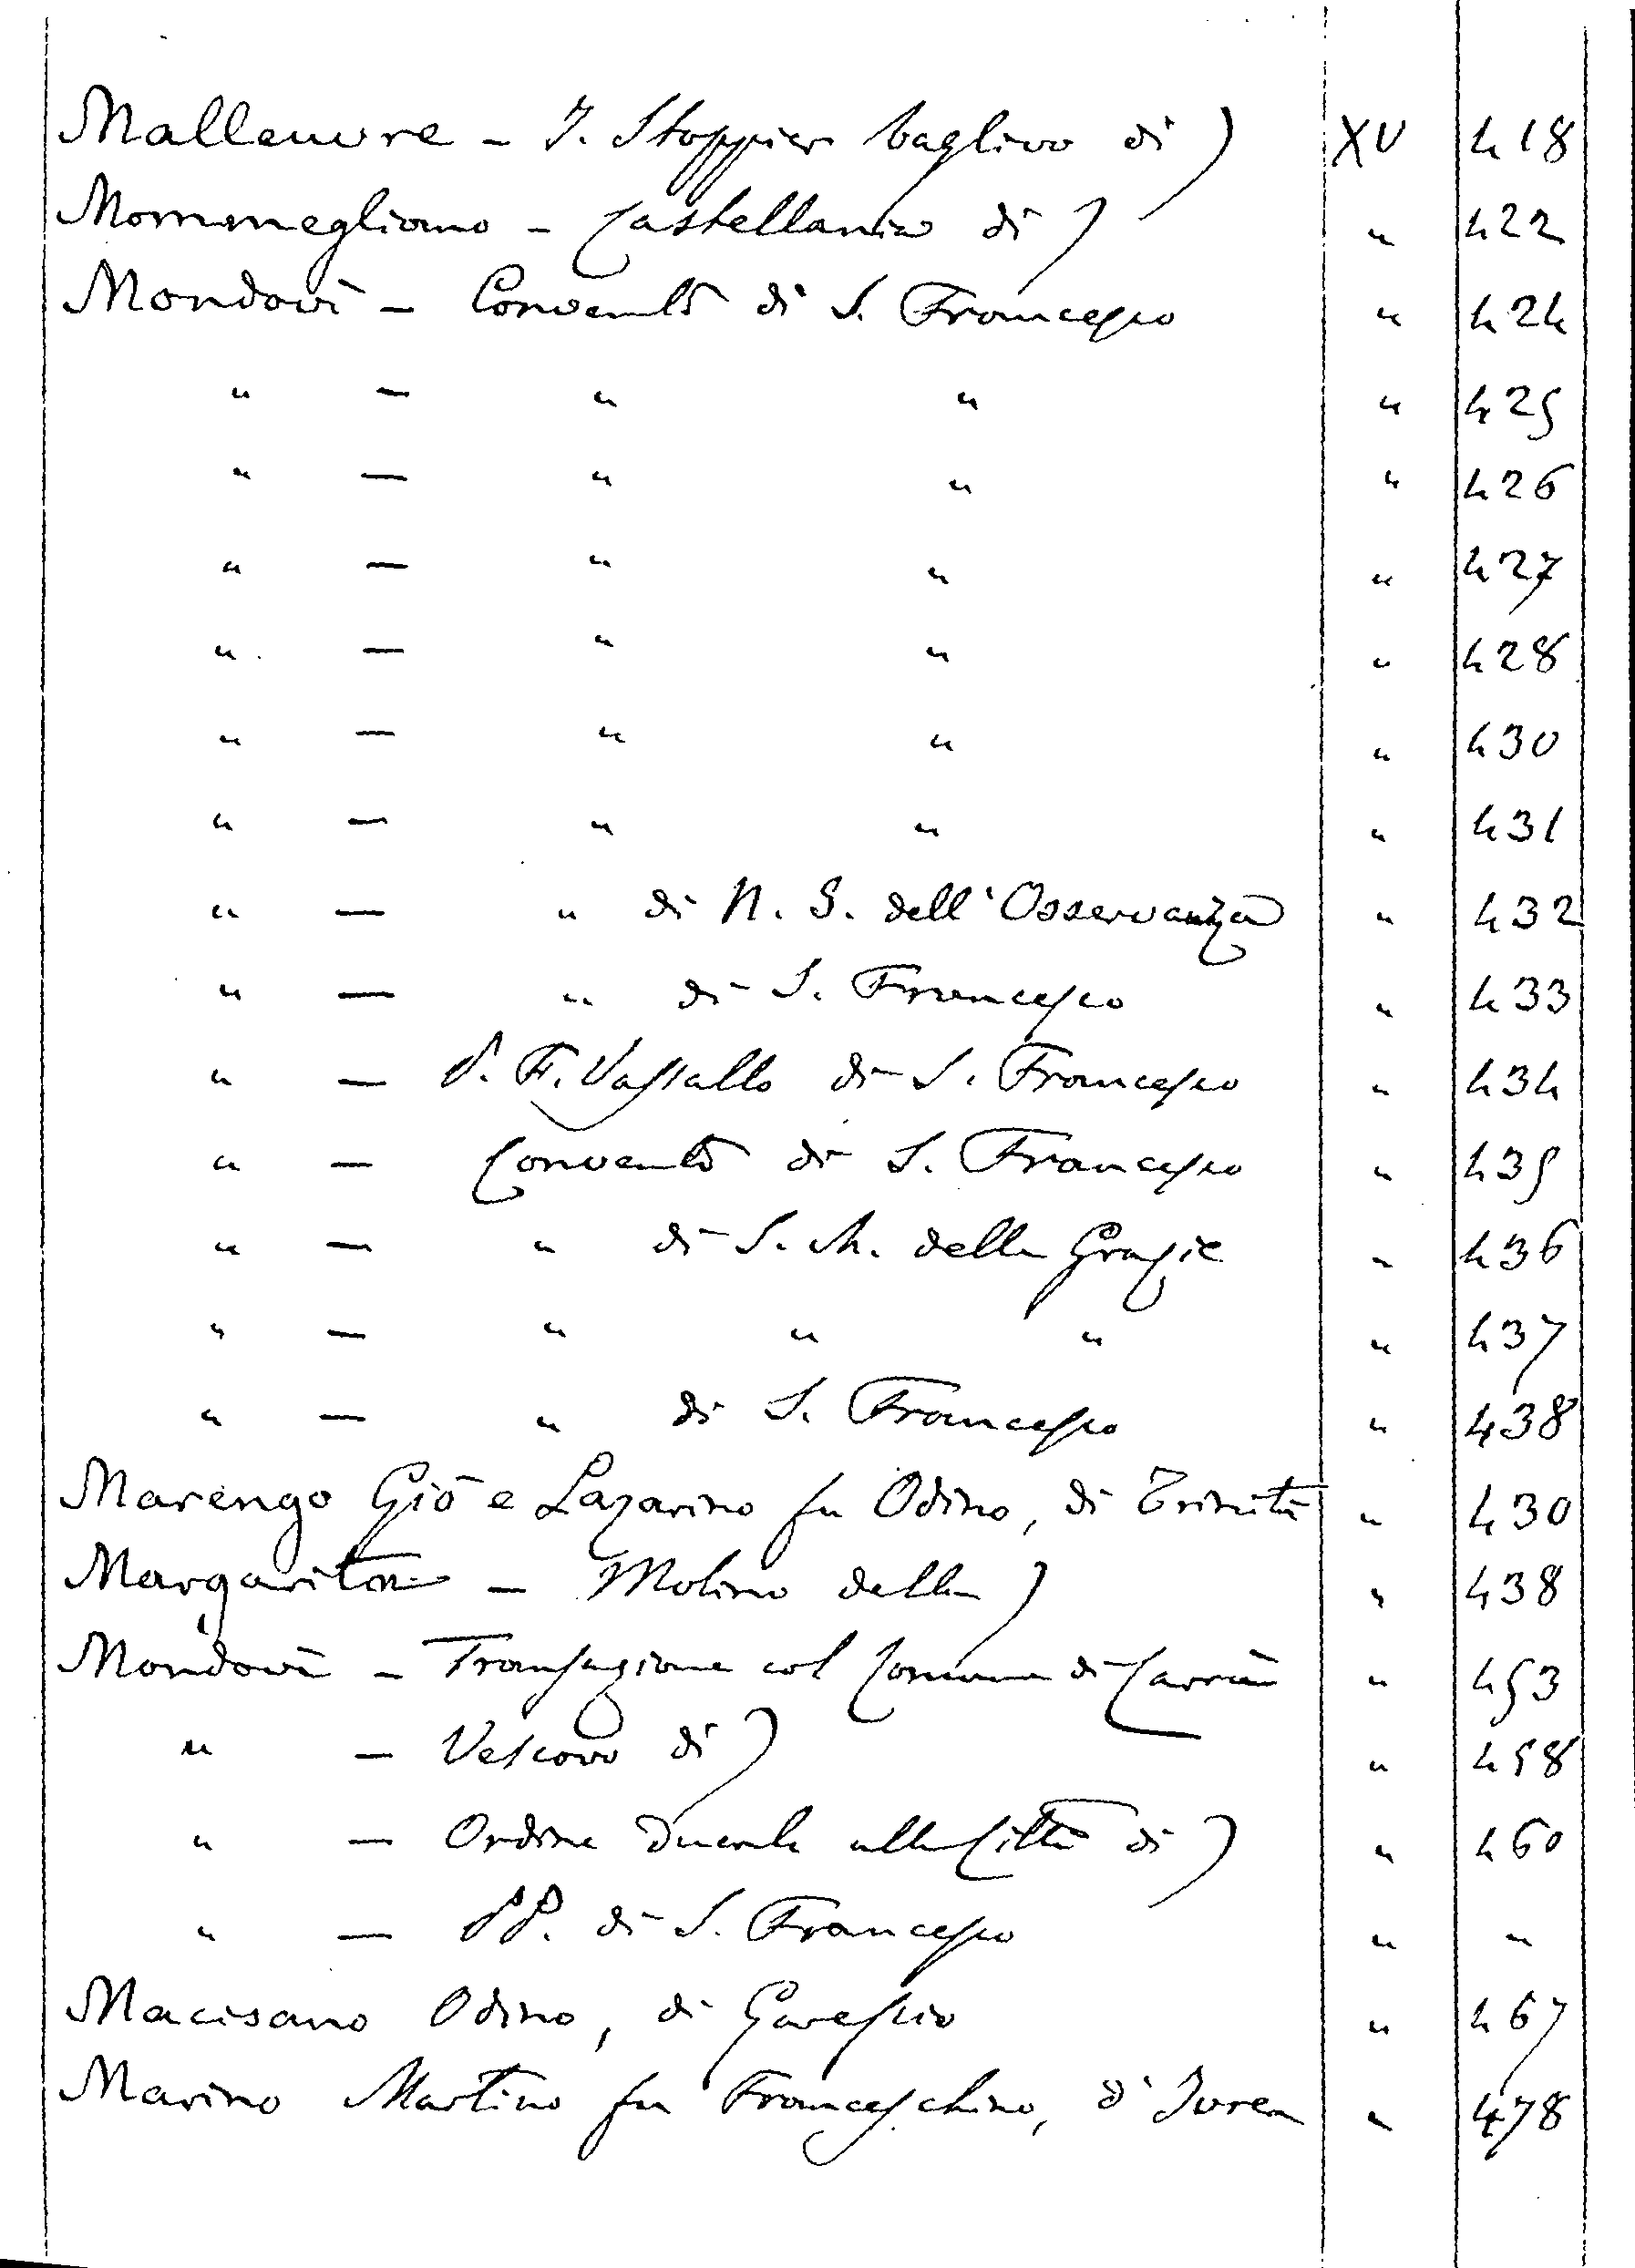 Malleuvre - J. Stoppier baglivo di) XV 418
Mommegliano - Castellania di) " 422
Mondovì - Convento di S. Francesco " 424
" - " " " 425
" - " " " 426
" - " " " 427
" - " " " 428
" - " " " 430
" - " " " 431
" - " di N. S. dell'Osservanza " 432
" - " di S. Francesco " 433
" - P. F. Vassallo di S. Francesco " 434
" - Convento di S. Francesco " 435
" - " di S. M. delle Grazie " 436
" - " " " " 437
" - " di S. Francesco " 438
Marengo Giō e Lazarino fu Odino, di Trinità " 430
Margarita - Molino della) " 438
Mondovì - Transazione col Comune di Carrù " 453
" - Vescovo di) " 458
" - Ordine Ducale alla Città di) " 460
" - PP. di S. Francesco " "
Macisano Odino, di Garessio " 467
Marino Martino fu Franceschino, d'Ivrea " 478